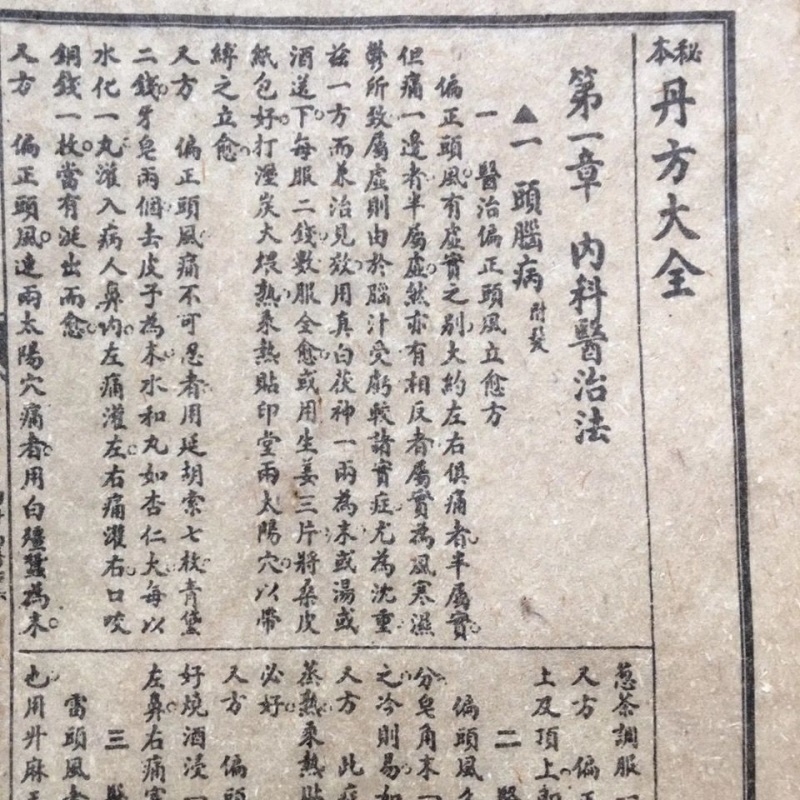 秘本 丹方大全
第一章 內科醫治法
▲一 頭腦病 附髮
一 醫治偏正頭風立愈方
偏正頭風。有虛實之別。大約左右俱痛者。半屬實。
但痛一邊者。半屬虛。然亦有相反者。屬實為風寒濕
鬱所致。屬虛則由於腦汁受虧。較諸實症。尤為沈重。
茲一方而兼治見效。用真白茯神一兩為末。或湯或
酒送下。每服二錢。數服全愈。或用生姜三片。將桑皮
紙包好。打溼炭火煨熱。乘熱貼印堂兩太陽穴。以帶
縛之立愈。
又方 偏正頭風痛不可忍者。用延胡索七枚。青黛
二錢。牙皂兩個。去皮子為末。水和丸如杏仁大。每以
水化一丸。灌入病人鼻內。左痛灌左。右痛灌右。口咬
銅錢一枚。當有涎出而愈。
又方 偏正頭風。連兩太陽穴痛者。用白殭蠶為末。
葱茶調服一
又方 偏正
上及頂上
二 醫
偏頭風
分皂角末一
之冷則易
又方 此症
蒸熱乘熱貼
必好。
又方 偏頭
好燒酒浸一
左鼻。右痛塞
三 醫
雷頭風
也。用升麻